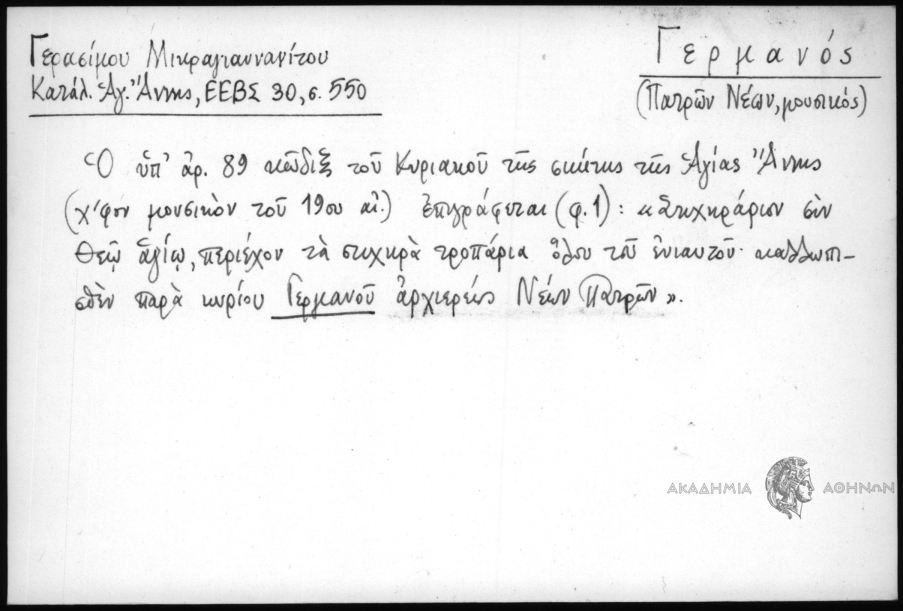 Γερασίμου Μικραγιαννανίτου
Κατάλ. Ἁγ. Ἄννης, ΕΕΒΣ 30, σ. 550
Γερμανός
(Πατρῶν Νέων, μουσικός)
Ὁ ὑπ' ἀρ. 89 κῶδιξ τοῦ Κυριακοῦ τῆς σκήτης τῆς Ἁγίας Ἄννης
(χ/φον μουσικὸν τοῦ 19ου αἰ.) ἐπιγράφεται (φ. 1): «Στιχηράριον σὺν
Θεῷ ἁγίῳ, περιέχον τὰ στιχηρὰ τροπάρια ὅλου τοῦ ἐνιαυτοῦ· καλλωπι-
σθὲν παρὰ κυρίου Γερμανοῦ ἀρχιερέως Νέων Πατρῶν».
ΑΚΑΔΗΜΙΑ ΑΘΗΝΩΝ